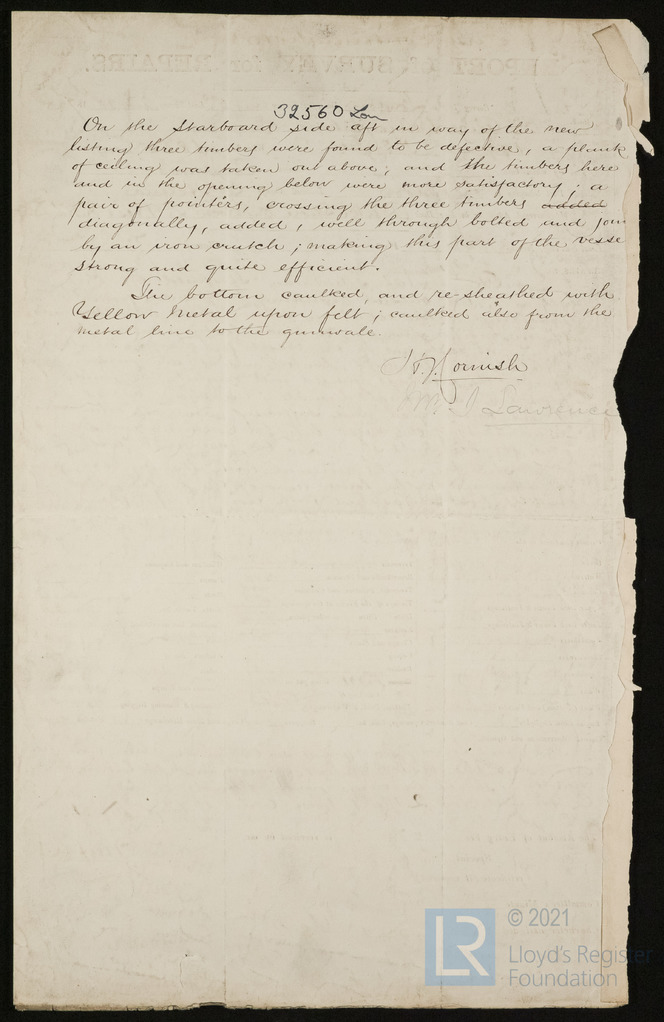 REPORT of SURVEY for REPAIRS.
32560 Lon
On the Starboard side aft in way of the new
listing three timbers were found to be defective, a plank
of ceiling was taken out above, and the timbers here
and in the opening below were more satisfactory; a
pair of pointers, crossing the three timbers added
diagonally, added, well through bolted and join
by an iron crutch; making this part of the vesse
strong and quite efficient.
The bottom caulked, and re-sheathed with
Yellow Metal upon felt; caulked also from the
metal line to the gunwale.
Cornish
Lawrence
© 2021
LR
Lloyd's Register
Foundation